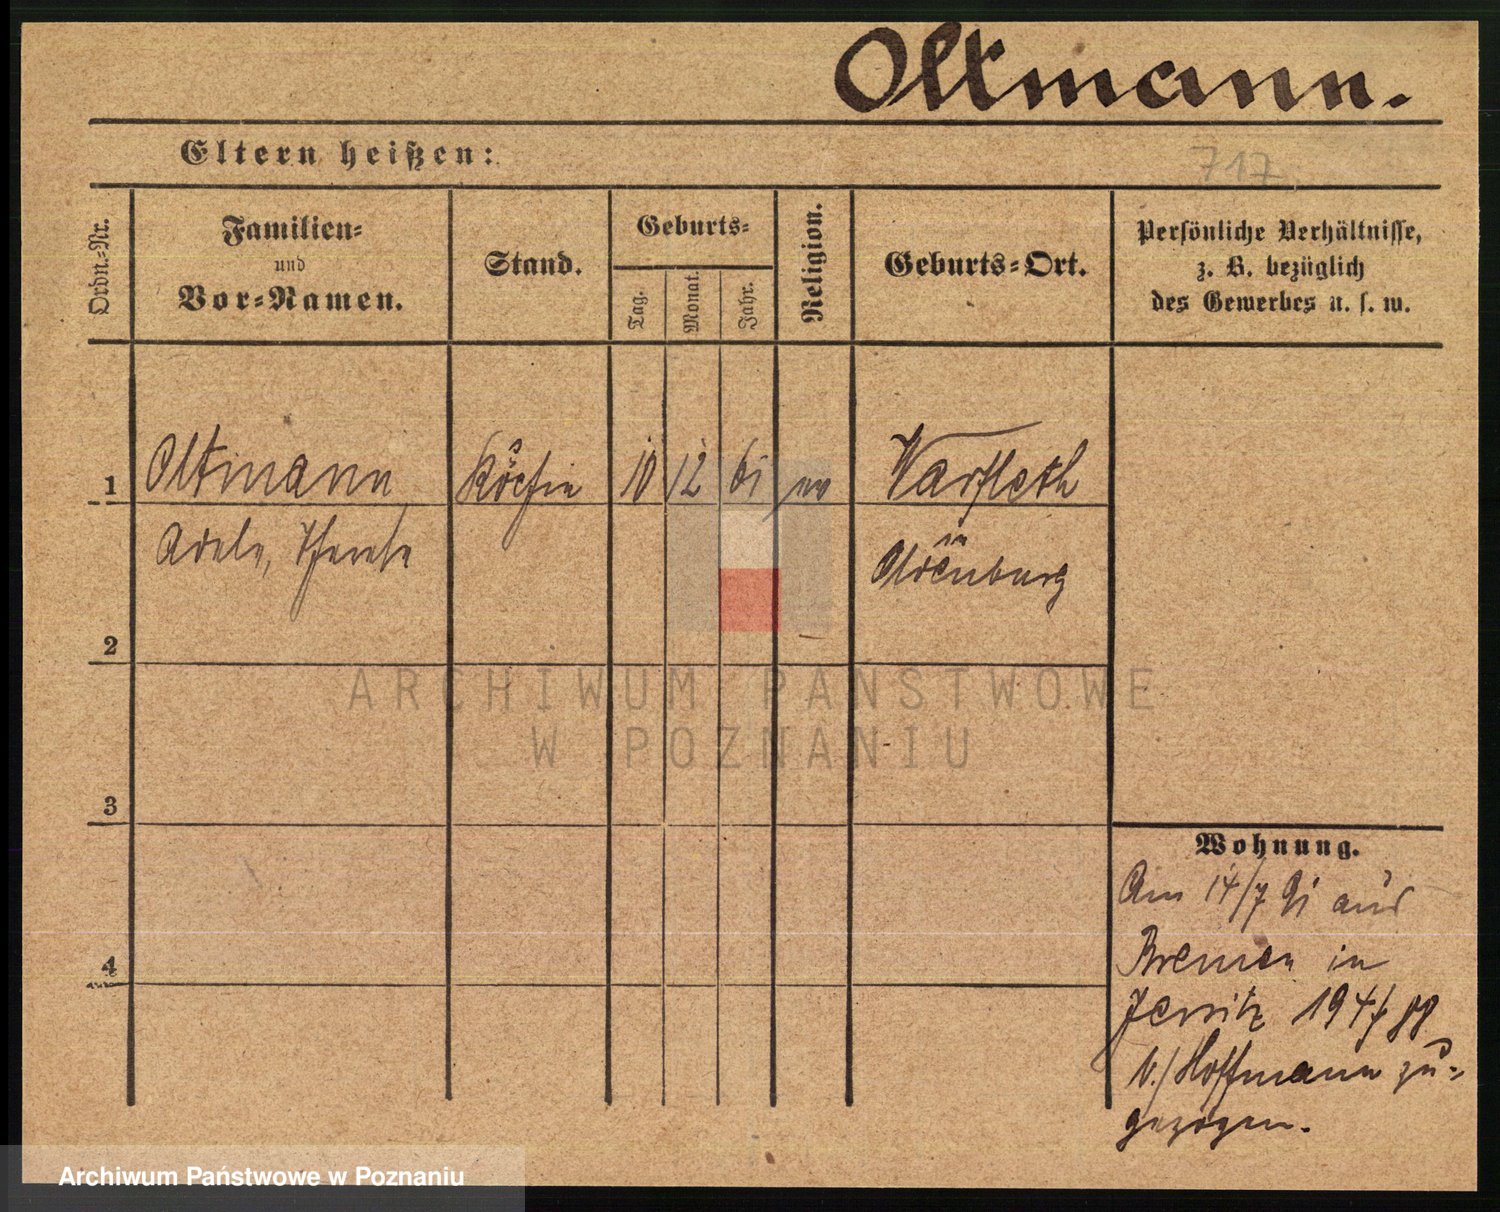 Oltmann.
Eltern heißen:
717
Ordn.-Nr.
Familien-
und
Vor-Namen.
Stand.
Geburts-
Tag.
Monat.
Jahr.
Religion.
Geburts-Ort.
Persönliche Verhältnisse,
z. B. bezüglich
des Gewerbes u. s. w.
1 Oltmann Köchin 10 12 65 ev Warfleth
Adele, Therese in
Oldenburg
2
3
4
Wohnung.
Am 14/7 91 aus
Bremen in
Jersitz 194/
b./Hoffmann zu-
gezogen.
ARCHIWUM PAŃSTWOWE
W POZNANIU
Archiwum Państwowe w Poznaniu